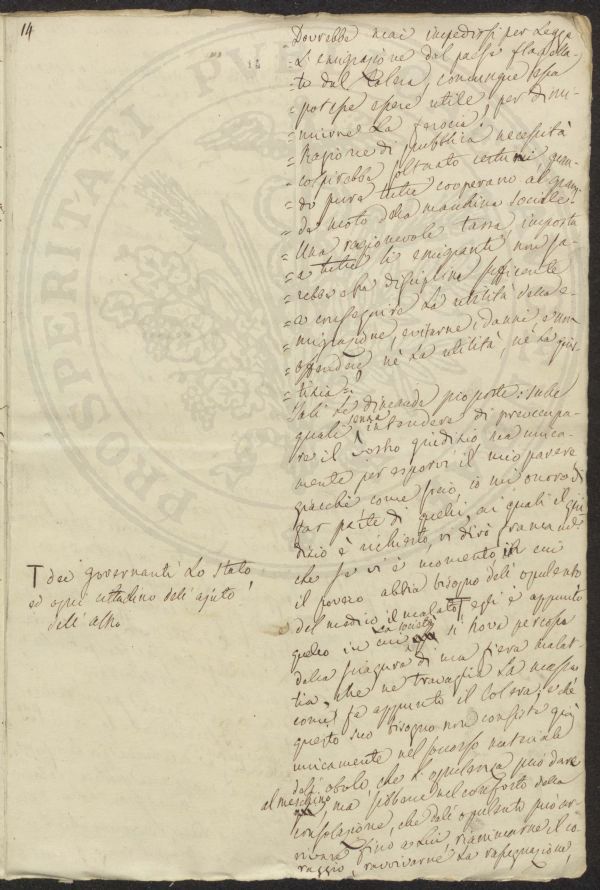 14
Dovrebbe mai impedirsi per Legge
= L'emigrazione dal paese flagella-
= to dal Colera, comunque essa
= potesse essere utile, per dimi-
= nuirne La ferocia?
= Ragione di pubblica necessità
= cospirebbe soltanto certuni, quan-
= do pure tutti cooperano al gran-
= de moto della machina sociale.
= Una ragionevole tassa imposta
= a tutti li emigranti non sa-
= rebbe essa disciplina sufficiente
= a conseguire La utilità della e-
= migrazione, evitarne i danni, e non
= offendere nè La utilità nè La gius-
= tizia =?
Tali Le dimande proposte: sulle
quali senza intendere di preoccupa-
re il vostro giudizio, ma unica-
mente per esporvi il mio parere
giacchè come socio, io mi onoro di
far parte di quelli, ai quali il giu
dizio è richiesto, vi dirò francam.e
che se vi è momento in cui
il povero abbia bisogno dell'opulento
del medico il malato T egli è appunto
quello in cui La società si trova percossa
dalla sciagura di una fiera malat-
tia, che ne travaglia La massa
come fa appunto il Colera; e chè
questo suo bisogno non consiste già
unicamente nel soccorso materiale
dell'obolo, che L'opulenza può dare
al meschino, ma sibbene nel conforto della
consolazione, che dall'opulento può ar-
rivare fino a Lui, rianimarne il co
raggio, ravvivarne La rassegnazione,
T dei governanti Lo Stato
ed ogni cittadino dell'ajuto
dell'altro
PROSPERITATI PVB